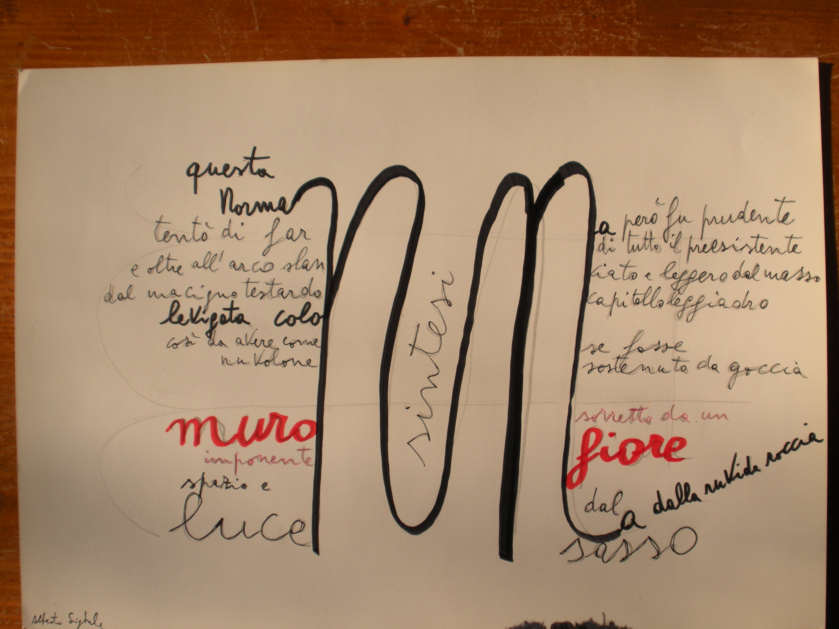 questa
Norma
tentò di far
e oltre all'arco slan
dal macigno testardo
levigata colo
così da avere come
nuvolone
muro
imponente
spazio e
luce
sintesi
a però fu prudente
di tutto il preesistente
ciato e leggero dal masso
capitello leggiadro
se fosse
sostenuto da goccia
sorretto da un
fiore
dal
a dalla ruvida roccia
sasso
Alberto